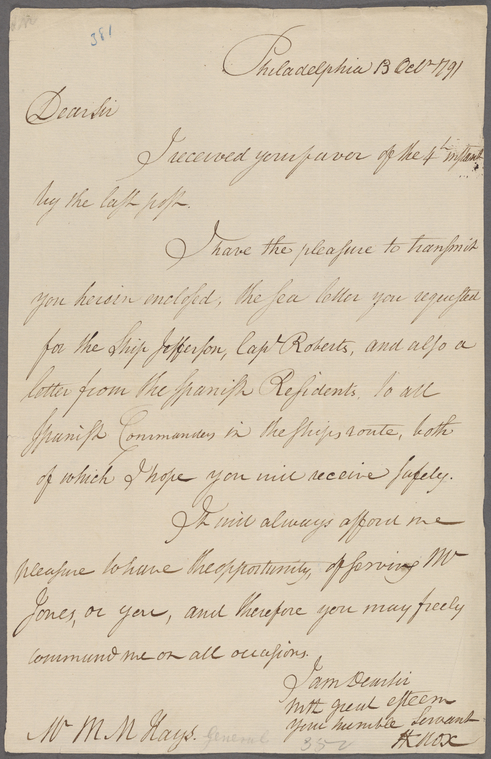 381
Philadelphia 13 Octr 1791
Dear Sir
I received your favor of the 4th instant
by the last post.
I have the pleasure to transmit
you herein enclosed, the sea letter you requested
for the Ship Jefferson, Capt Roberts, and also a
letter from the Spanish Residents, to all
Spanish Commanders in the ships route, both
of which I hope you will receive safely.
It will always afford me
pleasure to have the opportunity, of serving Mr
Jones, or you, and therefore you may freely
command me on all occasions.
I am Dear Sir
with great esteem
Your humble Servant
HKnox
Mr M M Hays.
General 352